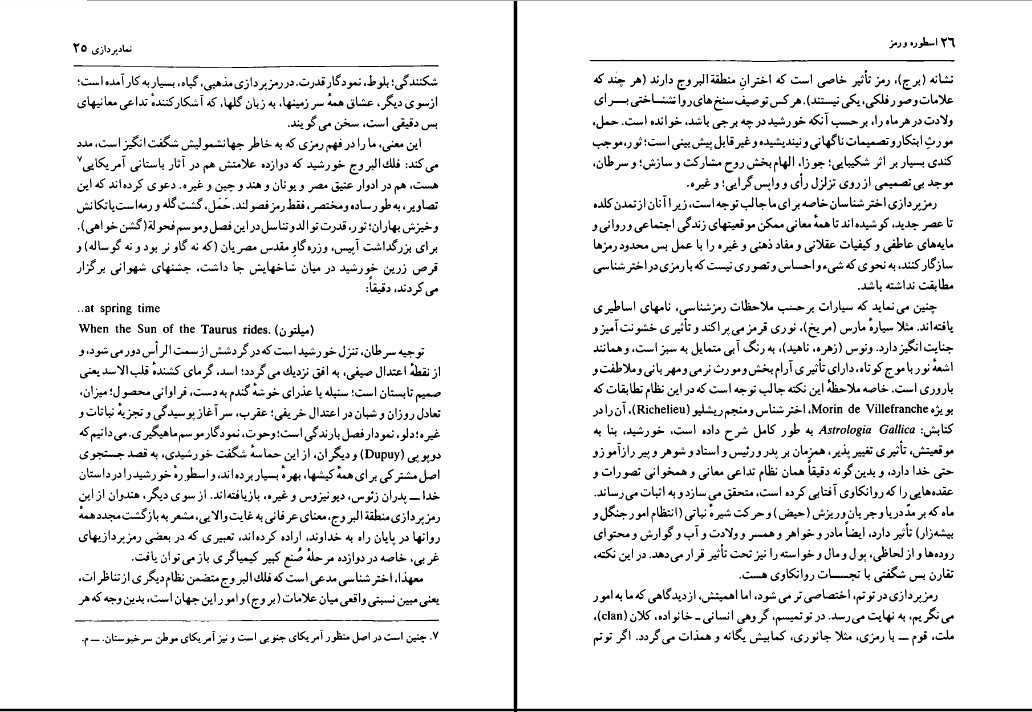 نمادپردازی ۲۵
شکنندگی؛ بلوط، نمودگار قدرت. در رمزپردازی مذهبی، گیاه، بسیار به کار آمده است؛
ازسوی دیگر، عشاق همهٔ سرزمینها، به زبان گلها، که آشکارکنندهٔ تداعی معانیهای
بس دقیقی است، سخن می‌گویند.
این معنی، ما را در فهم رمزی که به خاطر جهانشمولیش شگفت انگیز است، مدد
می‌کند: فلك البروج خورشید که دوازده علامتش هم در آثار باستانی آمریکایی۷
هست، هم در ادوار عتیق مصر و یونان و هند و چین و غیره. دعوی کرده‌اند که این
تصاویر، به طور ساده و مختصر، فقط رمز فصولند. حَمَل، گشت گله و رمه‌است یا تکانش
و خیزش بهاران؛ ثور، قدرت توالد و تناسل در این فصل و موسم فحولة (گشن خواهی).
برای بزرگداشت آپیس، ورزه گاوِ مقدس مصریان (که نه گاو نر بود و نه گوساله) و
قرص زرین خورشید در میان شاخهایش جا داشت، جشنهای شهوانی برگزار
می‌کردند، دقیقاً:
..at spring time
When the Sun of the Taurus rides. (میلتون)
توجیه سرطان، تنزل خورشید است که در گردشش از سمت الرأس دور می‌شود، و
از نقطهٔ اعتدال صیفی، به افق نزدیك می‌گردد؛ اسد، گرمای کشندهٔ قلب الاسد یعنی
صمیم تابستان است؛ سنبله یا عذرای خوشهٔ گندم به دست، فراوانی محصول؛ میزان،
تعادل روزان و شبان در اعتدال خریفی؛ عقرب، سرآغاز پوسیدگی و تجزیهٔ نباتات و
غیره؛ دلو، نمودار فصل بارندگی است؛ وحوت، نمودگار موسم ماهیگیری. می‌دانیم که
دوپویی (Dupuy) و دیگران، از این حماسهٔ شگفت خورشیدی، به قصد جستجوی
اصل مشترکی برای همهٔ کیشها، بهرهٔ بسیار برده‌اند، و اسطورهٔ خورشید را در داستان
خدا ــ پدران زئوس، دیونیزوس و غیره، بازیافته‌اند. از سوی دیگر، هندوان از این
رمزپردازی منطقة البروج، معنای عرفانی به غایت والایی، مشعر به بازگشت مجدد همهٔ
روانها در پایان راه به خداوند، اراده کرده‌اند، تعبیری که در بعضی رمزپردازیهای
غربی، خاصه در دوازده مرحلهٔ صُنع کبیر کیمیاگری باز می‌توان یافت.
معهذا، اخترشناسی مدعی است که فلك البروج متضمن نظام دیگری از تناظرات،
یعنی مبین نسبتی واقعی میان علامات (بروج) و امور این جهان است، بدین وجه که هر
۷. چنین است در اصل منظور آمریکای جنوبی است و نیز آمریکای موطن سرخپوستان. ــ م.
۲۶ اسطوره و رمز
نشانه (برج)، رمز تأثیر خاصی است که اخترانِ منطقة البروج دارند (هر چند که
علامات و صور فلکی، یکی نیستند). هرکس توصیف سنخ‌های روانشناختی بـرای
ولادت در هر ماه را، بر حسب آنکه خورشید در چه برجی باشد، خوانده است. حمل،
مورثِ ابتکار و تصمیمات ناگهانی و نیندیشیده و غیر قابل پیش بینی است؛ ثور، موجب
کندی بسیار بر اثر شکیبایی؛ جوزا، الهام بخش روح مشارکت و سازش؛ و سرطان،
موجد بی تصمیمی از روی تزلزل رأی و واپس گرایی؛ و غیره.
رمزپردازی اخترشناسان خاصه برای ما جالب توجه است، زیرا آنان از تمدن کلده
تا عصر جدید، کوشیده‌اند تا همهٔ معانی ممکن موقعیتهای زندگی اجتماعی و روانی و
مایه‌های عاطفی و کیفیات عقلانی و مفاد ذهنی و غیره را با عمل بس محدود رمزها
سازگار کنند، به نحوی که شیء و احساس و تصوری نیست که با رمزی در اخترشناسی
مطابقت نداشته باشد.
چنین می‌نماید که سیارات برحسب ملاحظات رمزشناسی، نامهای اساطیری
یافته‌اند. مثلا سیارهٔ مارس (مریخ)، نوری قرمز می‌پراکند و تأثیری خشونت آمیز و
جنایت انگیز دارد. ونوس (زهره، ناهید)، به رنگ آبی متمایل به سبز است، و همانند
اشعهٔ نور با موج کوتاه، دارای تأثیری آرام بخش و مورث نرمی و مهربانی و ملاطفت و
باروری است. خاصه ملاحظهٔ این نکته جالب توجه است که در این نظام تطابقات که
بویژه Morin de Villefranche، اخترشناس و منجم ریشلیو (Richelieu)، آن را در
کتابش: Astrologia Gallica به طور کامل شرح داده است، خورشید، بنا به
موقعیتش، تأثیری تغییر پذیر، همزمان بر پدر و رئیس و استاد و شوهر و پیر رازآموز و
حتی خدا دارد، و بدین گونه دقیقاً همان نظام تداعی معانی و همخوانی تصورات و
عقده‌هایی را که روانکاوی آفتابی کرده است، متحقق می‌سازد و به اثبات می‌رساند.
ماه که بر مدّ دریا و جریان و ریزش (حیض) و حرکت شیرهٔ نباتی (انتظام امور جنگل و
بیشه‌زار) تأثیر دارد، ایضاً مادر و خواهر و همسر و ولادت و آب و گوارش و محتوای
روده‌ها و از لحاظی، پول و مال و خواسته را نیز تحت تأثیر قرار می‌دهد. در این نکته،
تقارن بس شگفتی با تجسسات روانکاوی هست.
رمزپردازی در توتم، اختصاصی تر می‌شود، اما اهمیتش، از دیدگاهی که ما به امور
می‌نگریم، به نهایت می‌رسد. در توتمیسم، گروهی انسانی ـ خانواده، کلان (clan)،
ملت، قوم ــ با رمزی، مثلا جانوری، کمابیش یگانه و همذات می‌گردد. اگر توتم